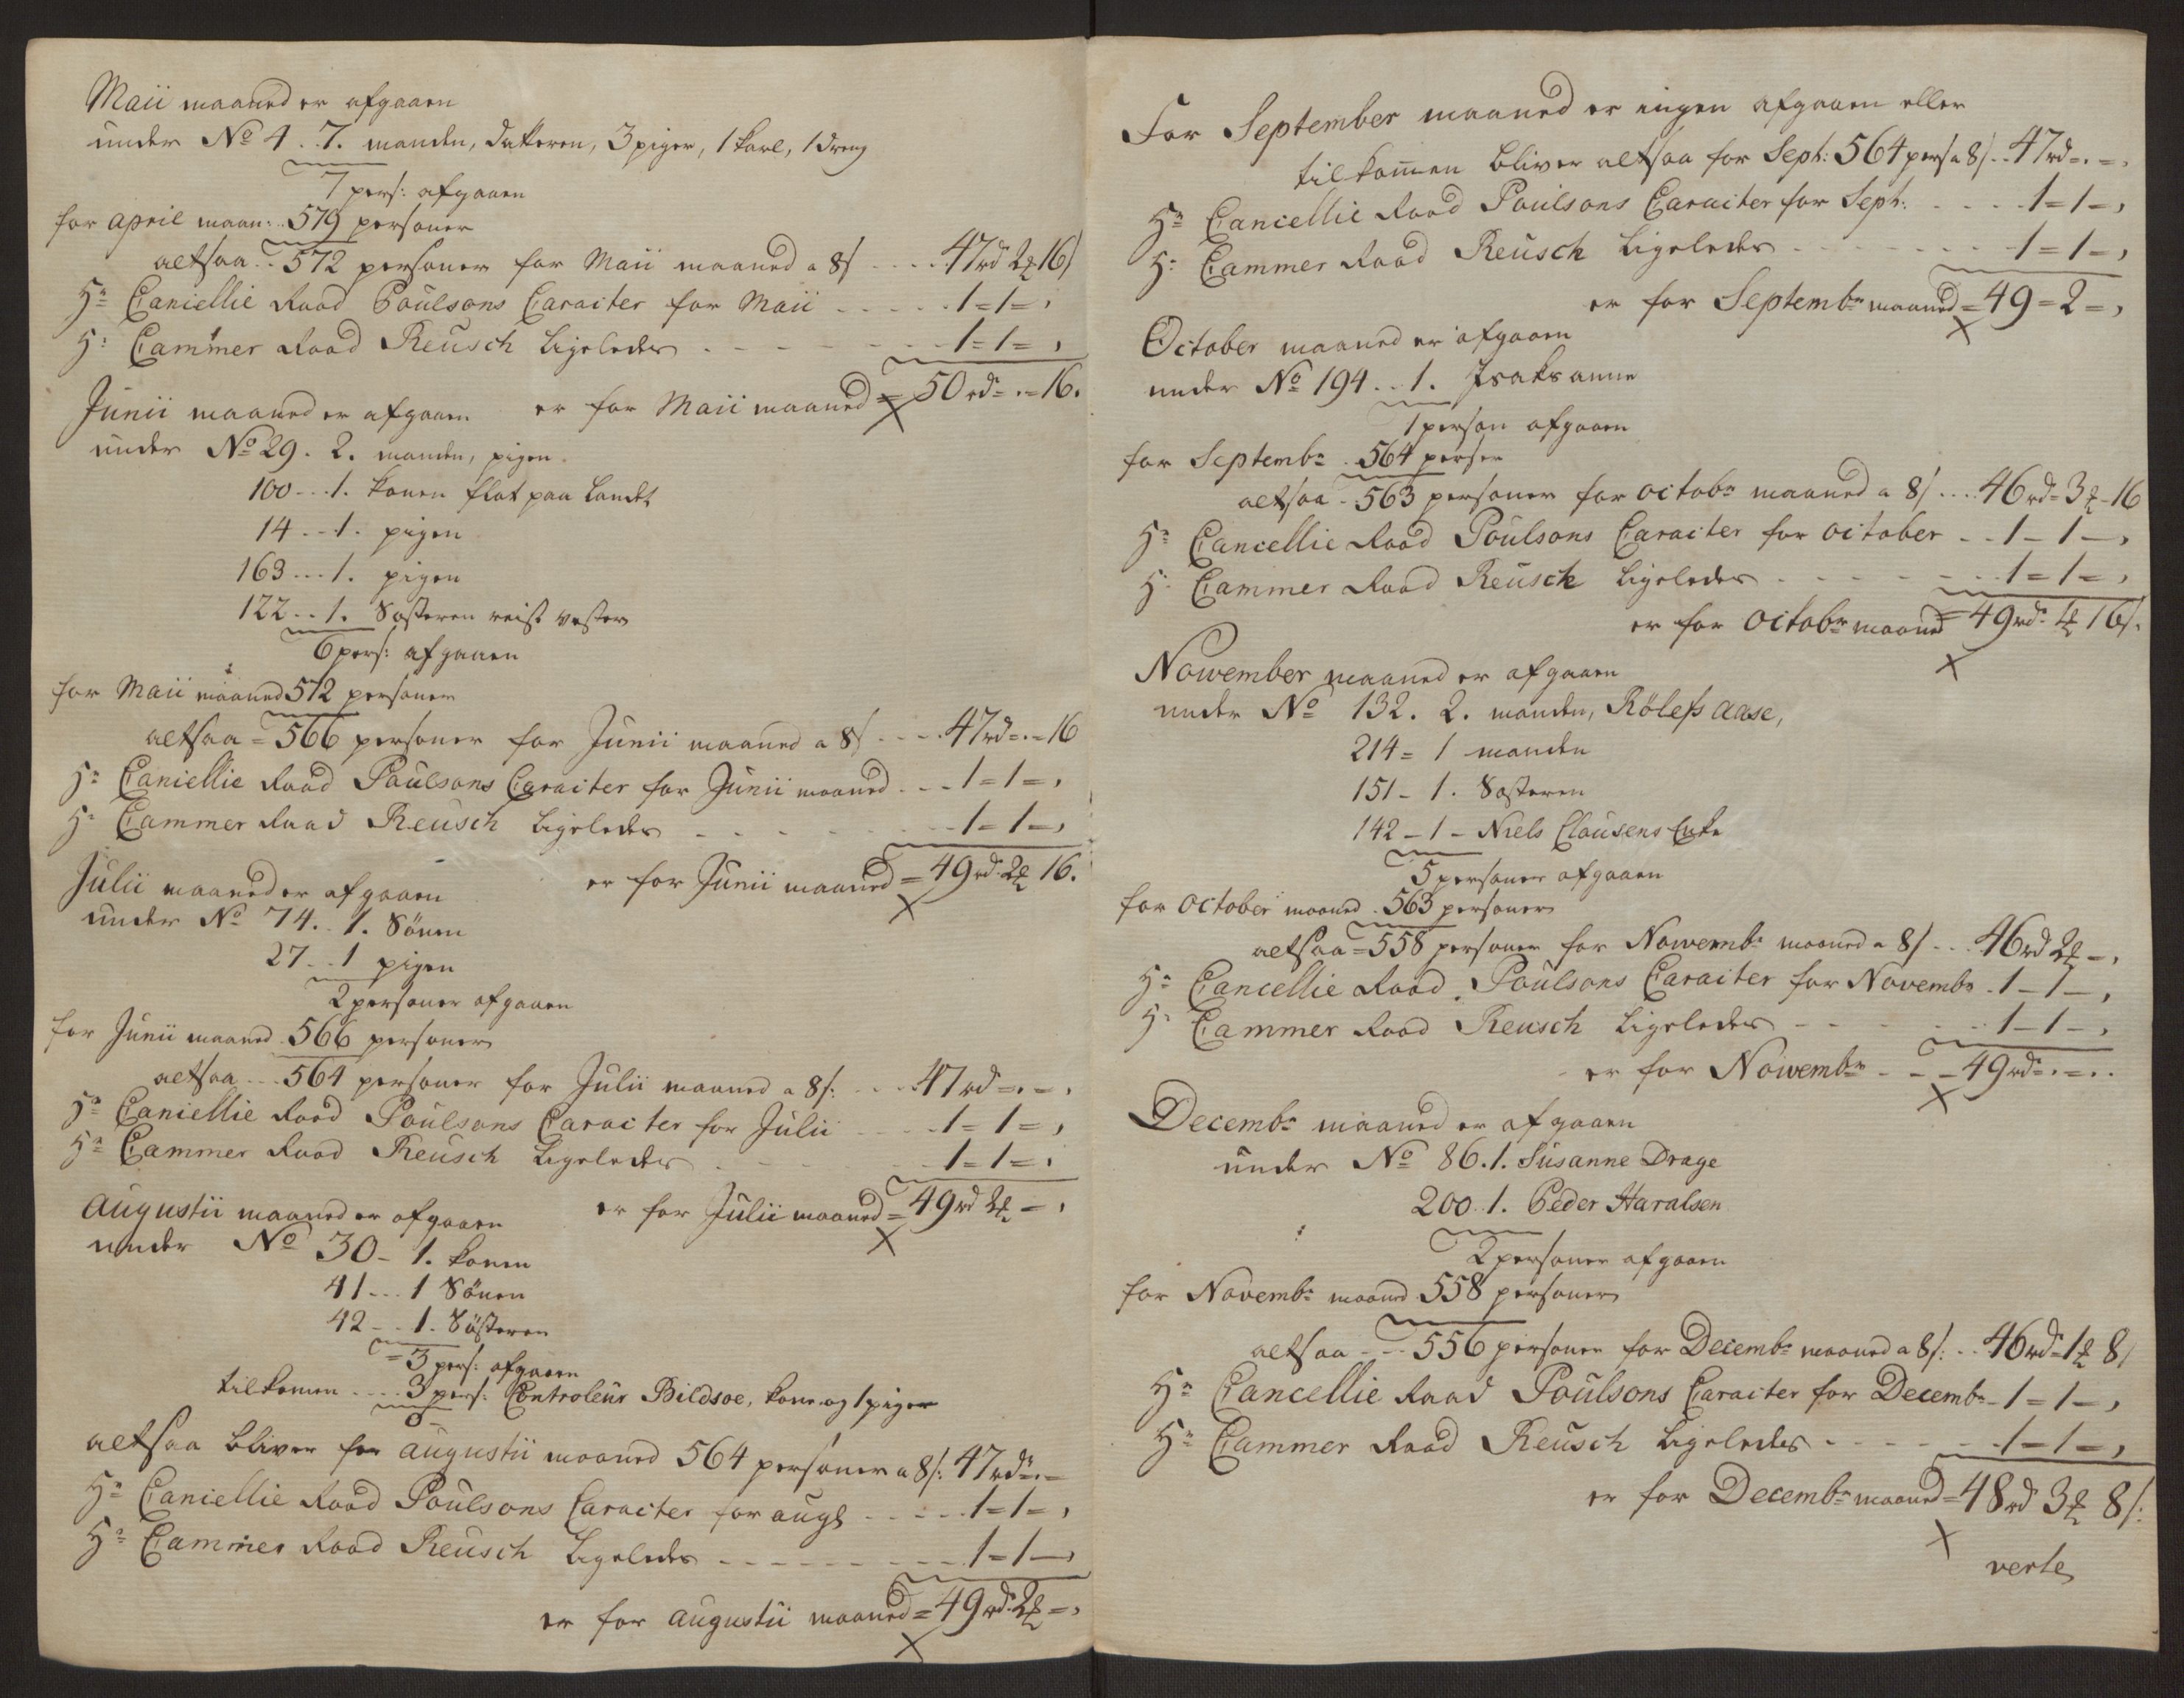 Maii maaned er afgaaen
under No 4..7. manden, datteren, 3 piger, 1 karl, 1 dreng
7 pers: afgaaen
for april maan: 579 personer
altsaa .. 572 personer for Maii maaned a 8/ .... 47 rd 2 16/
Hr Cancellie Raad Poulsons Caracter for Maii ..... 1=1=,
Hr Cammer Raad Reusch ligeledes ..... 1=1=,
er for Maii maaned = 50 rd=.=16.
Junii maaned er afgaaen
under No 29. 2. manden, pigen
100...1. konen fløt paa Landet
14...1. pigen
163...1. pigen
122..1. Søsteren reist vester
6 pers: afgaaen
for Maii maaned 572 personer
altsaa = 566 personer for Junii maaned a 8/ .... 47 rd=.=16
Hr Cancellie Raad Poulsons Caracter for Junii maaned ... 1=1=,
Hr Cammer Raad Reusch ligeledes ..... 1=1=,
er for Junii maaned = 49 rd 2 16.
Julii maaned er afgaaen
under No 74..1. Sönen
27..1 pigen
2 personer afgaaen
for Junii maaned 566 personer
altsaa ... 564 personer for Julii maaned a 8/: ... 47 rd=.=.
Hr Cancellie Raad Poulsons Caracter for Julii .... 1=1=,
Hr Cammer Raad Reusch ligeledes .... 1=1=.
er for Julii maaned = 49 rd 2 =,
Augustii maaned er afgaaen
under No 30-1. konen
41...1 Sönen
42-..1. Söstern
=3 pers: afgaaen
tilkomen .... 3 pers: Controleur Bildsoe, kone og 1 piger
0-
altsaa bliver for augustii maaned 564 personer a 8/: 47 rd=.=
Hr Cancellie Raad Poulsons Caracter for augs ..... 1=1=,
Hr Cammer Raad Reusch ligeledes ......... 1=1=,
er for augustii maaned = 49 rd 2 =,
For September maaned er ingen afgaaen eller
tilkommen bliver altsaa for Sept: 564 pers a 8/ .. 47 rd=.=.
Hr Cancellie Raad Poulsons Caracter for Sept: .... 1=1=,
Hr Cammer Raad Reusch ligeledes ....... 1=1=,
er for Septembr maaned = 49=2=,
October maaned er afgaaen
under No 194...1. Isaks anne
1 person afgaaen
for Septembr . 564 perser
altsaa - 563 personer for octobr maaned a 8/ ... 46 rd=3-16
Hr Cancellie Raad Poulsons Caracter for october .. 1-1-,
Hr Cammer Raad Reusch ligeledes ...... 1=1=,
er for Octobr maaned = 49 rd 1 16/.
Nowember maaned er afgaaen
under No 132. 2. manden, Röless Aase,
214=1 manden
151-1. Søsteren
142-1- Niels Clausens Enke
5 personer afgaaen
for October maaned . 563 personer
altsaa = 558 personer for Nowembr maaned a 8/ ... 46 rd 2 =,
Hr Cancellie Raad Poulsons Caracter for Novembr . 1-1-,
Hr Cammer Raad Reusch ligeledes ...... 1-1-,
er for Nowembr .--49 rd=.=..
Decembr maaned er afgaaen
under No 86.1. Susanne Drage
200.1. Peder Haralsen
2 personer afgaaen
for Novembr maaned 558 personer
altsaa --- 556 personer for Decembr maaned a 8/: .. 46 rd=1 8/
Hr Cancellie Raad Poulsons Caracter for Decembr - 1=1-,
Hr Cammer Raad Reusch ligeledes ..... 1=1=,
er for Decembr maaned = 48 rd 3 8/:
verte